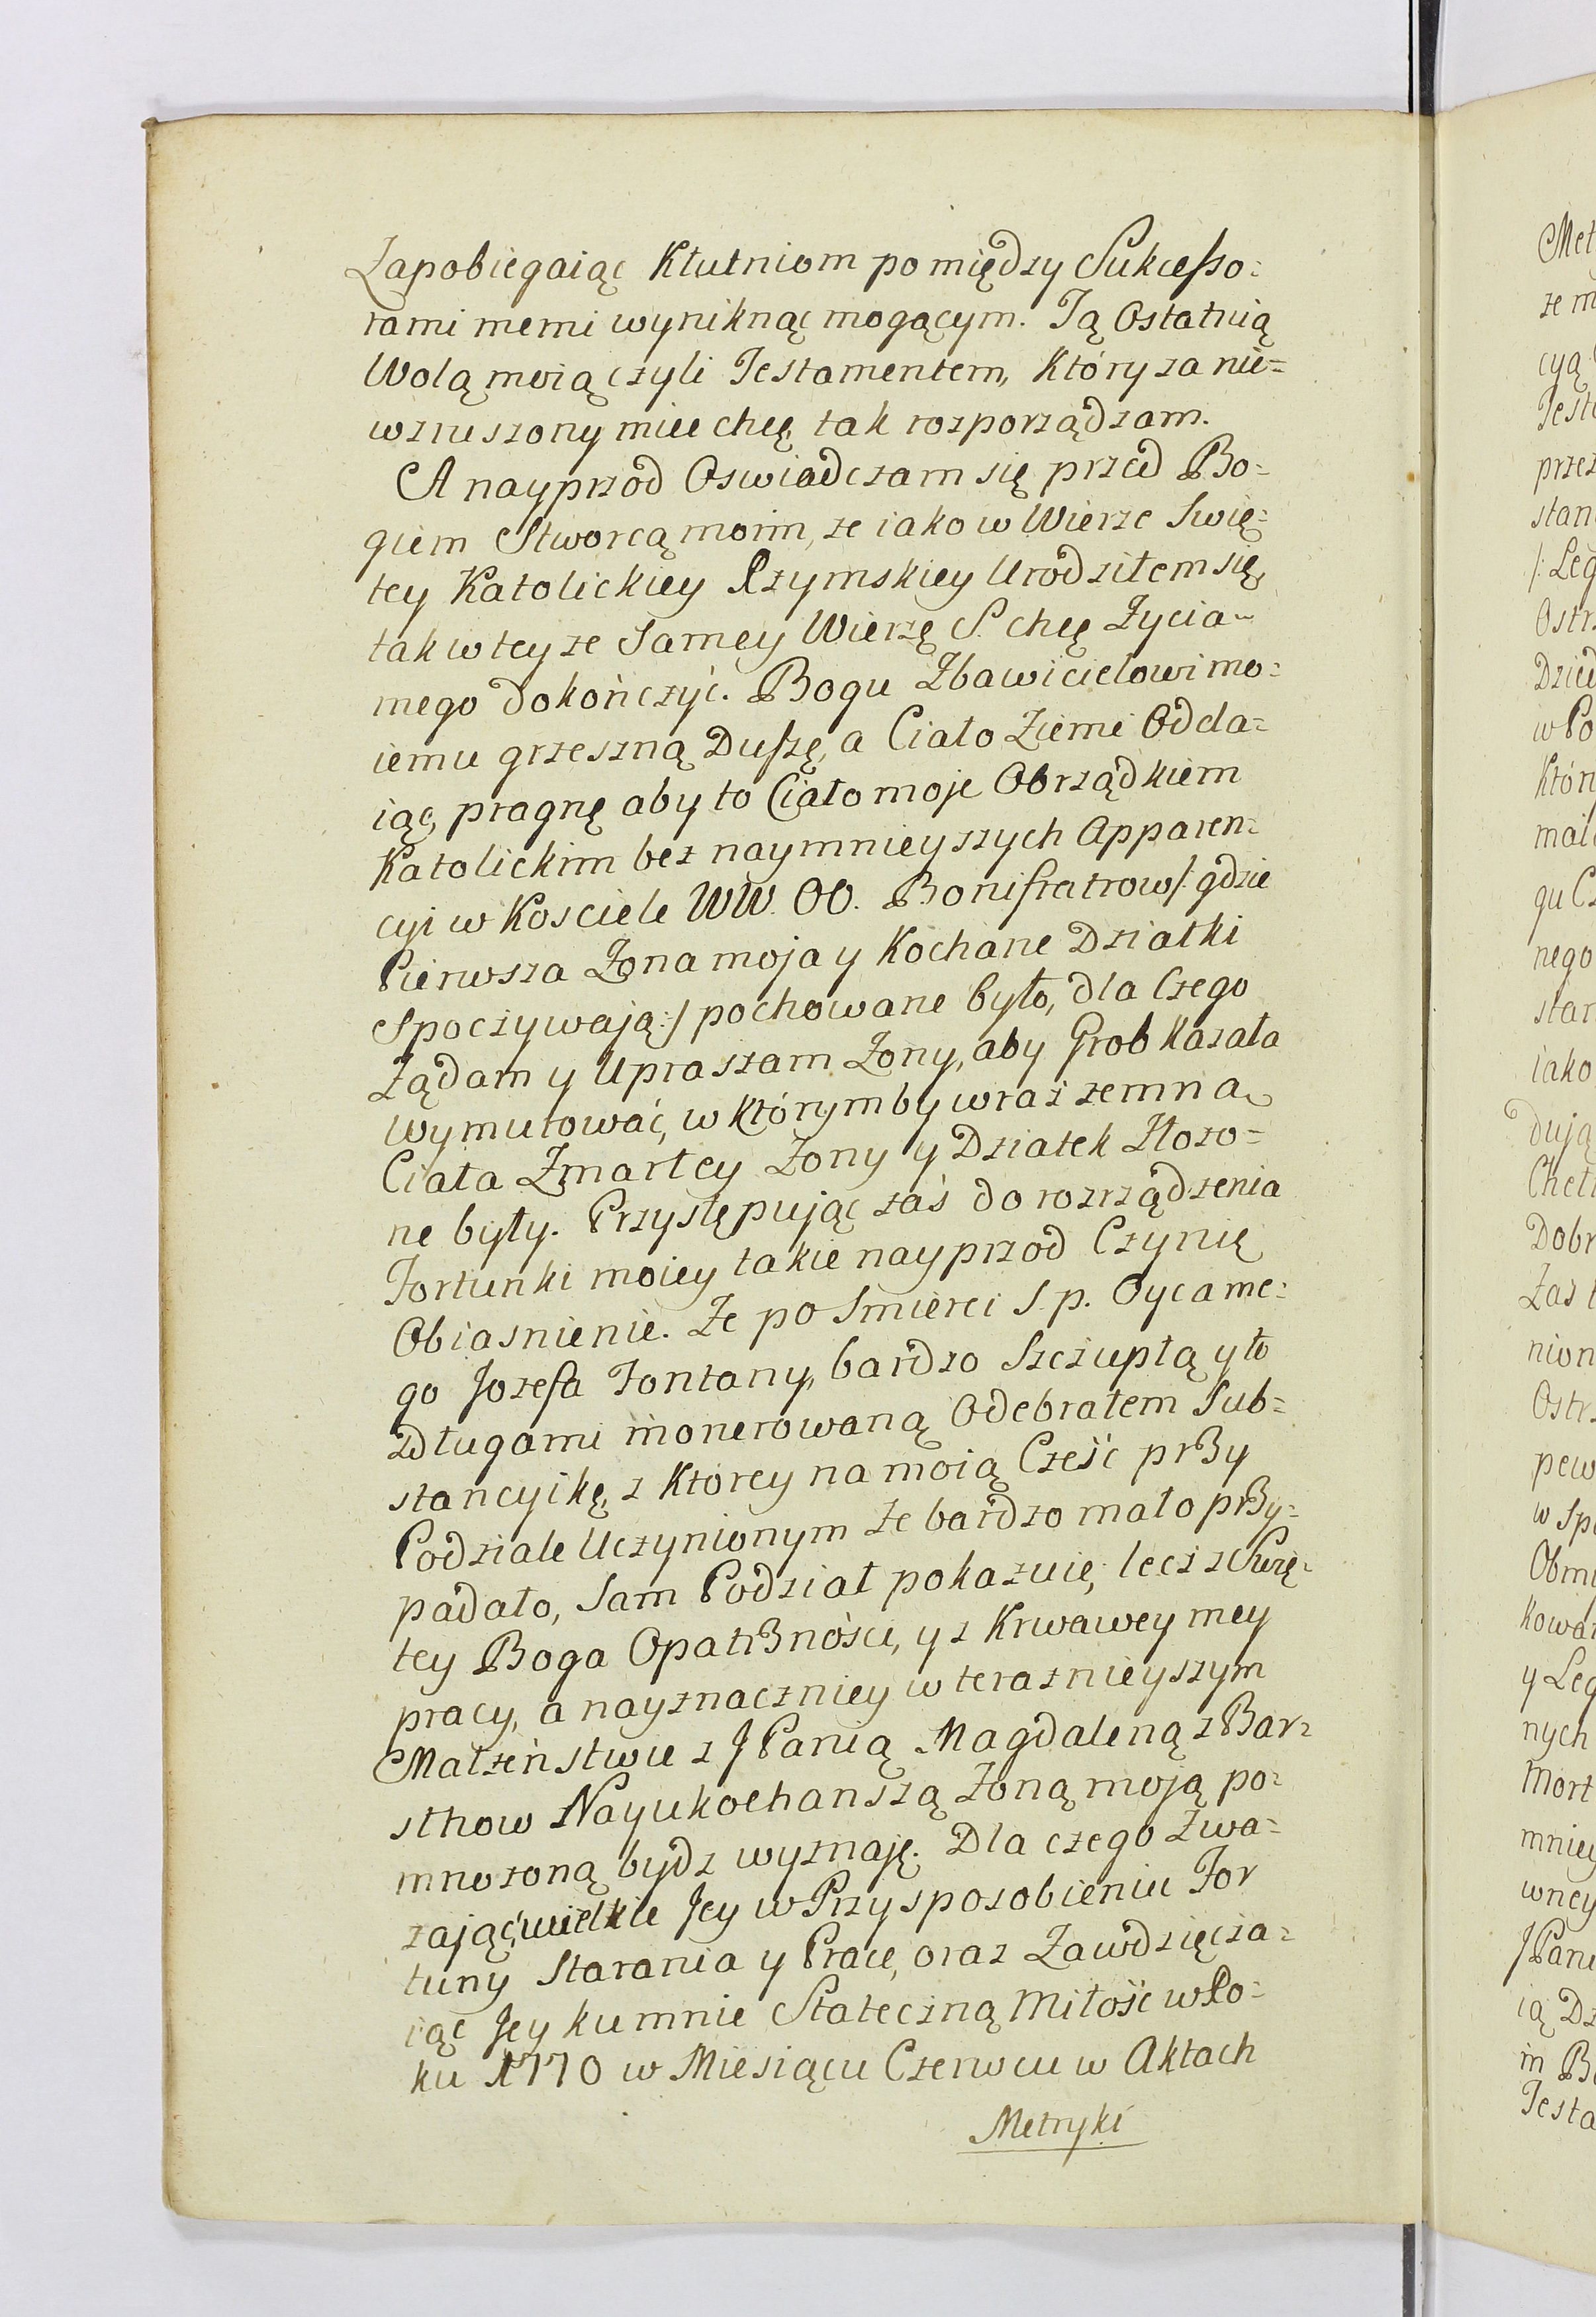 Zapobiegaiąc Kłutniom pomiędzy Sukcesso=
rami memi wyniknąc mogącym. Tą Ostatnią
Wolą moią czyli Testamentem, Który za nie=
wzruszony miec chcę, tak rozporządzam.
A nayprzod Oswiadczam się przed Bo=
giem Stworcą moim, ze iako w Wierze Swię=
tey Katolickiey Rzymskiey Urodziłem się,
tak w teyze Samey Wierzę S. chcę Zycia
mego dokończyć. Bogu Zbawicielowi mo=
iemu grzeszną Duszę, a Ciało Ziemi Odda=
iąc, pragnę aby to Ciało moje Obrządkiem
Katolickim bez naymnieyszych Apparen=
cyi w Kosciele WW. OO. Bonifratrow /: gdzie
Pierwsza Żona moja y Kochane Dziatki
Spoczywają :/ pochowane było, dla Czego
Żądam y Upraszam Żony, aby Grob Kazała
wymurować, w Którymby wraz zemną
Ciała Zmarłey Żony y Dziatek Złożo=
ne były. Przystępując zaś do rozrządzenia
Fortunki moiey takie nayprzod Czynię
Obiasnienie. Że po Smierci S. p. Oyca me=
go Jozefa Fontany, bardzo Szczupłą y to
Długami inonerowaną Odebrałem Sub=
stancyikę, z Ktorey na moią Cześć przy
Podziale Uczynionym że bardzo mało przy=
padało, Sam Podział pokazuie, lecz z Swię=
tey Boga Opatrznòści, y z Krwawey mey
pracy, a nayznaczniey w teraznieyszym
Małżeństwie z JPanią Magdaleną z Bar=
sthow Nayukochanszą Żoną moją po=
mnożoną bydz wyznaję. Dla czego Zwa=
zając wielkie Jey w Przysposobieniu For
tuny Starania y Prace, oraz Zawdzięcza=
iąc Jey ku mnie Stateczną Miłość w Ro=
ku 1770 w Miesiącu Czerwcu w Aktach
Metryki
Met
ze m
cyą
Test
przez
stan
/: Leg
Ostrz
Dzied
w Po
Któr
mai
gu Cz
nego
star
iako
dują
Cheł
Dobr
Zas
nion
Ostrz
pew
w Sp
Obm
kowa
y Leg
nych
Mort
mniey
wney
JPani
ią Dz
in B
Testa